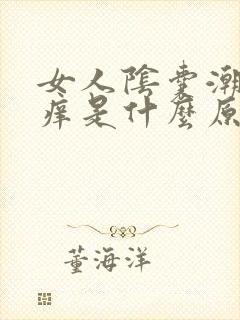 女人陰囊潮
痒是什麼原
董海洋